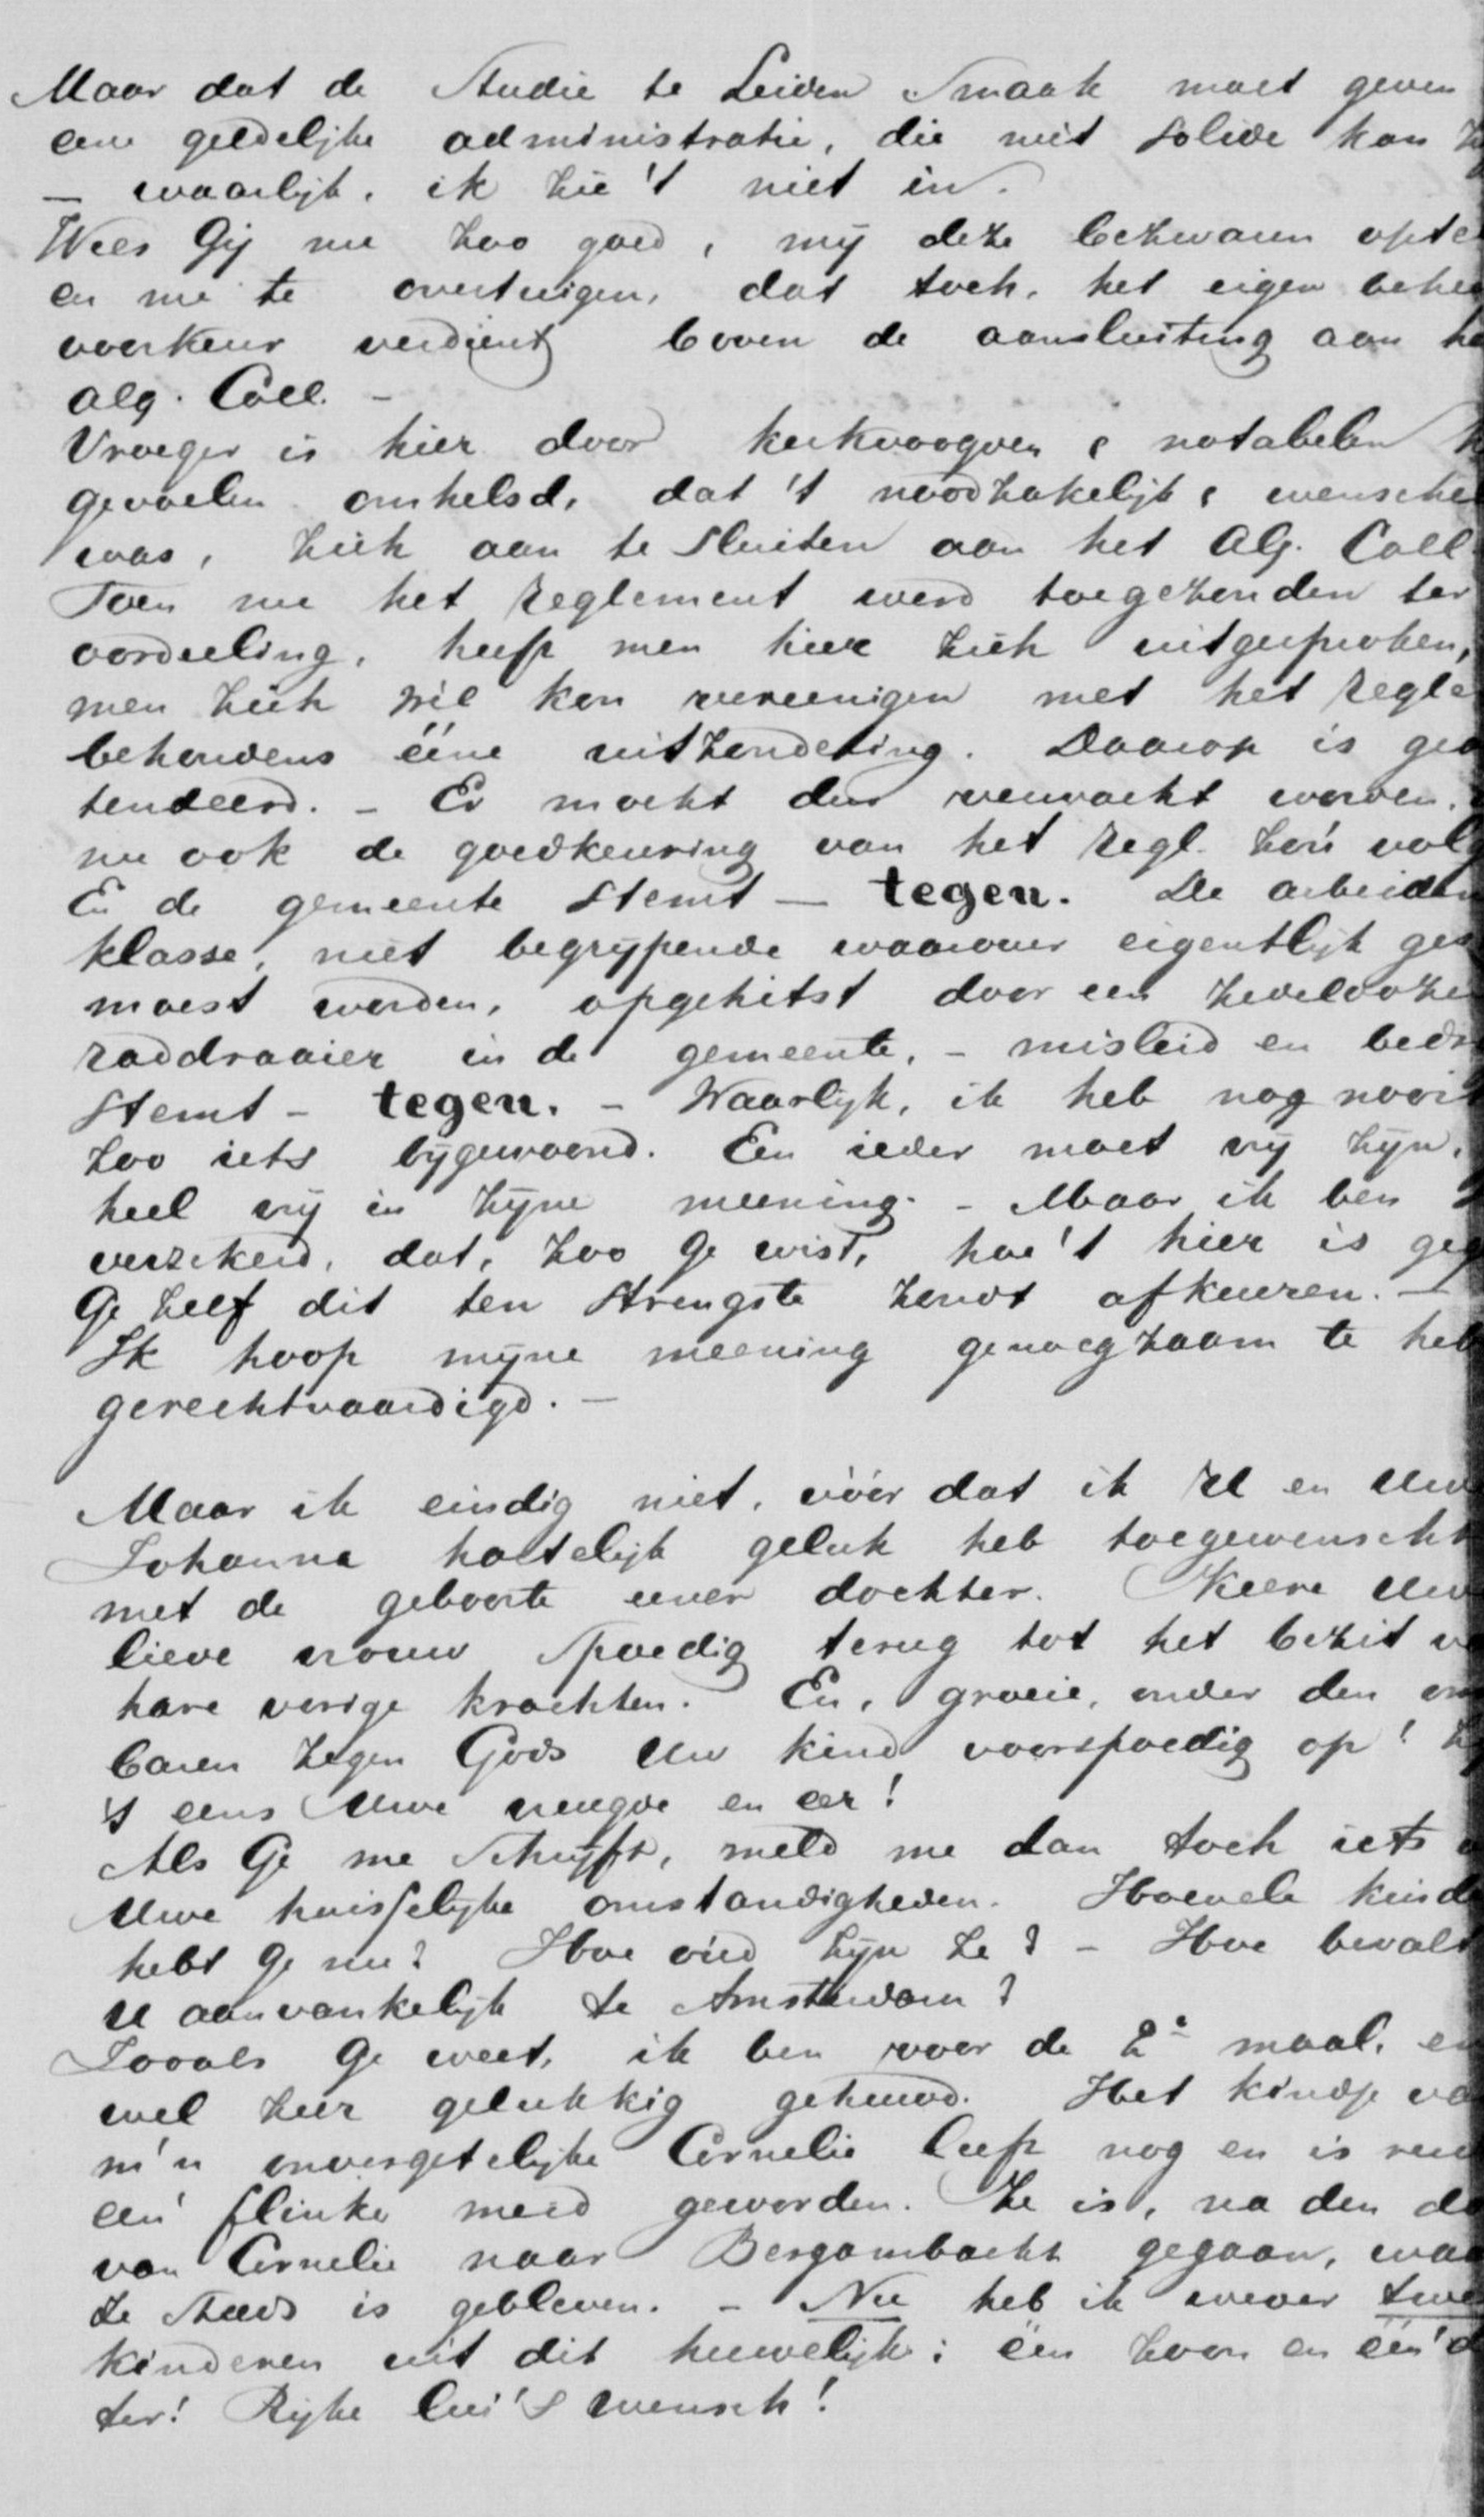 Maar dat de Studie te Leiden Smaak moet geven
eene geldelijke administratie, die niet solide kan
– waarlijk, ik zie 't niet in.
Wees Gij nu zoo goed, mij deze bezwaren opte
en me te overtuigen, dat toch, het eigen behee
voorkeur verdient boven de aansluiting aan he
alg. Coll. –
Vroeger is hier door kerkvoogden & notabelen
gevoelen omhelsd, dat 't noodzakelijk & wensche
was, zich aan te sluiten aan het Alg. Coll.
Toen nu het reglement werd toegezonden ter
oordeeling, heeft men hier zich uitgesproken,
men zich wèl kon vereenigen met het regle
behoudens ééne uitzondering. Daarop is gea
tendeerd. – Er mocht dus verwacht worden,
nu ook de goedkeuring van het regl. zou volg
En de gemeente stemt – tegen. De arbeiden
klasse, niet begrijpende waarover eigentlijk ges
moest worden, opgehitst door een zedelooze
raddraaier in de gemeente, – misleid en bedr
stemt – tegen. – Waarlijk, ik heb nog nooit
zoo iets bijgewoond. Een ieder moet vrij zijn,
heel vrij in zijne meening. – Maar ik ben
verzekerd, dat, zoo Ge wist, hoe 't hier is geg
Ge zelf dit ten strengste zoudt afkeuren. –
Ik hoop mijne meening genoegzaam te heb
gerechtvaardigd. –
Maar ik eindig niet, vóór dat ik U en Uw
Johanna hartelijk geluk heb toegewenscht
met de geboorte eener dochter. Keere Uw
lieve vrouw spoedig terug tot het bezit v
hare vorige krachten. En, groeie, onder den
baren zegen Gods Uw kind voorspoedig op! Z
's eens Uwe vreugde en eer!
Als Ge me schrijft, meld me dan toch iets
Uwe huisselijke omstandigheden. Hoevele kinde
hebt Ge nu? Hoe oud zijn ze? – Hoe bevalt
U aanvankelijk te Amsterdam?
Zooals Ge weet, ik ben voor de 2e maal, en
wel zeer gelukkig gehuwd. Het kindje va
m'n onvergetelijke Cornelie leeft nog en is
een flinke meid geworden. Ze is, na den do
van Cornelie naar Bergambacht gegaan, waa
ze steeds is gebleven. – Nu heb ik weder twe
kinderen uit dit huwelijk: één zoon en één d
ter! Rijke lui's wensch!